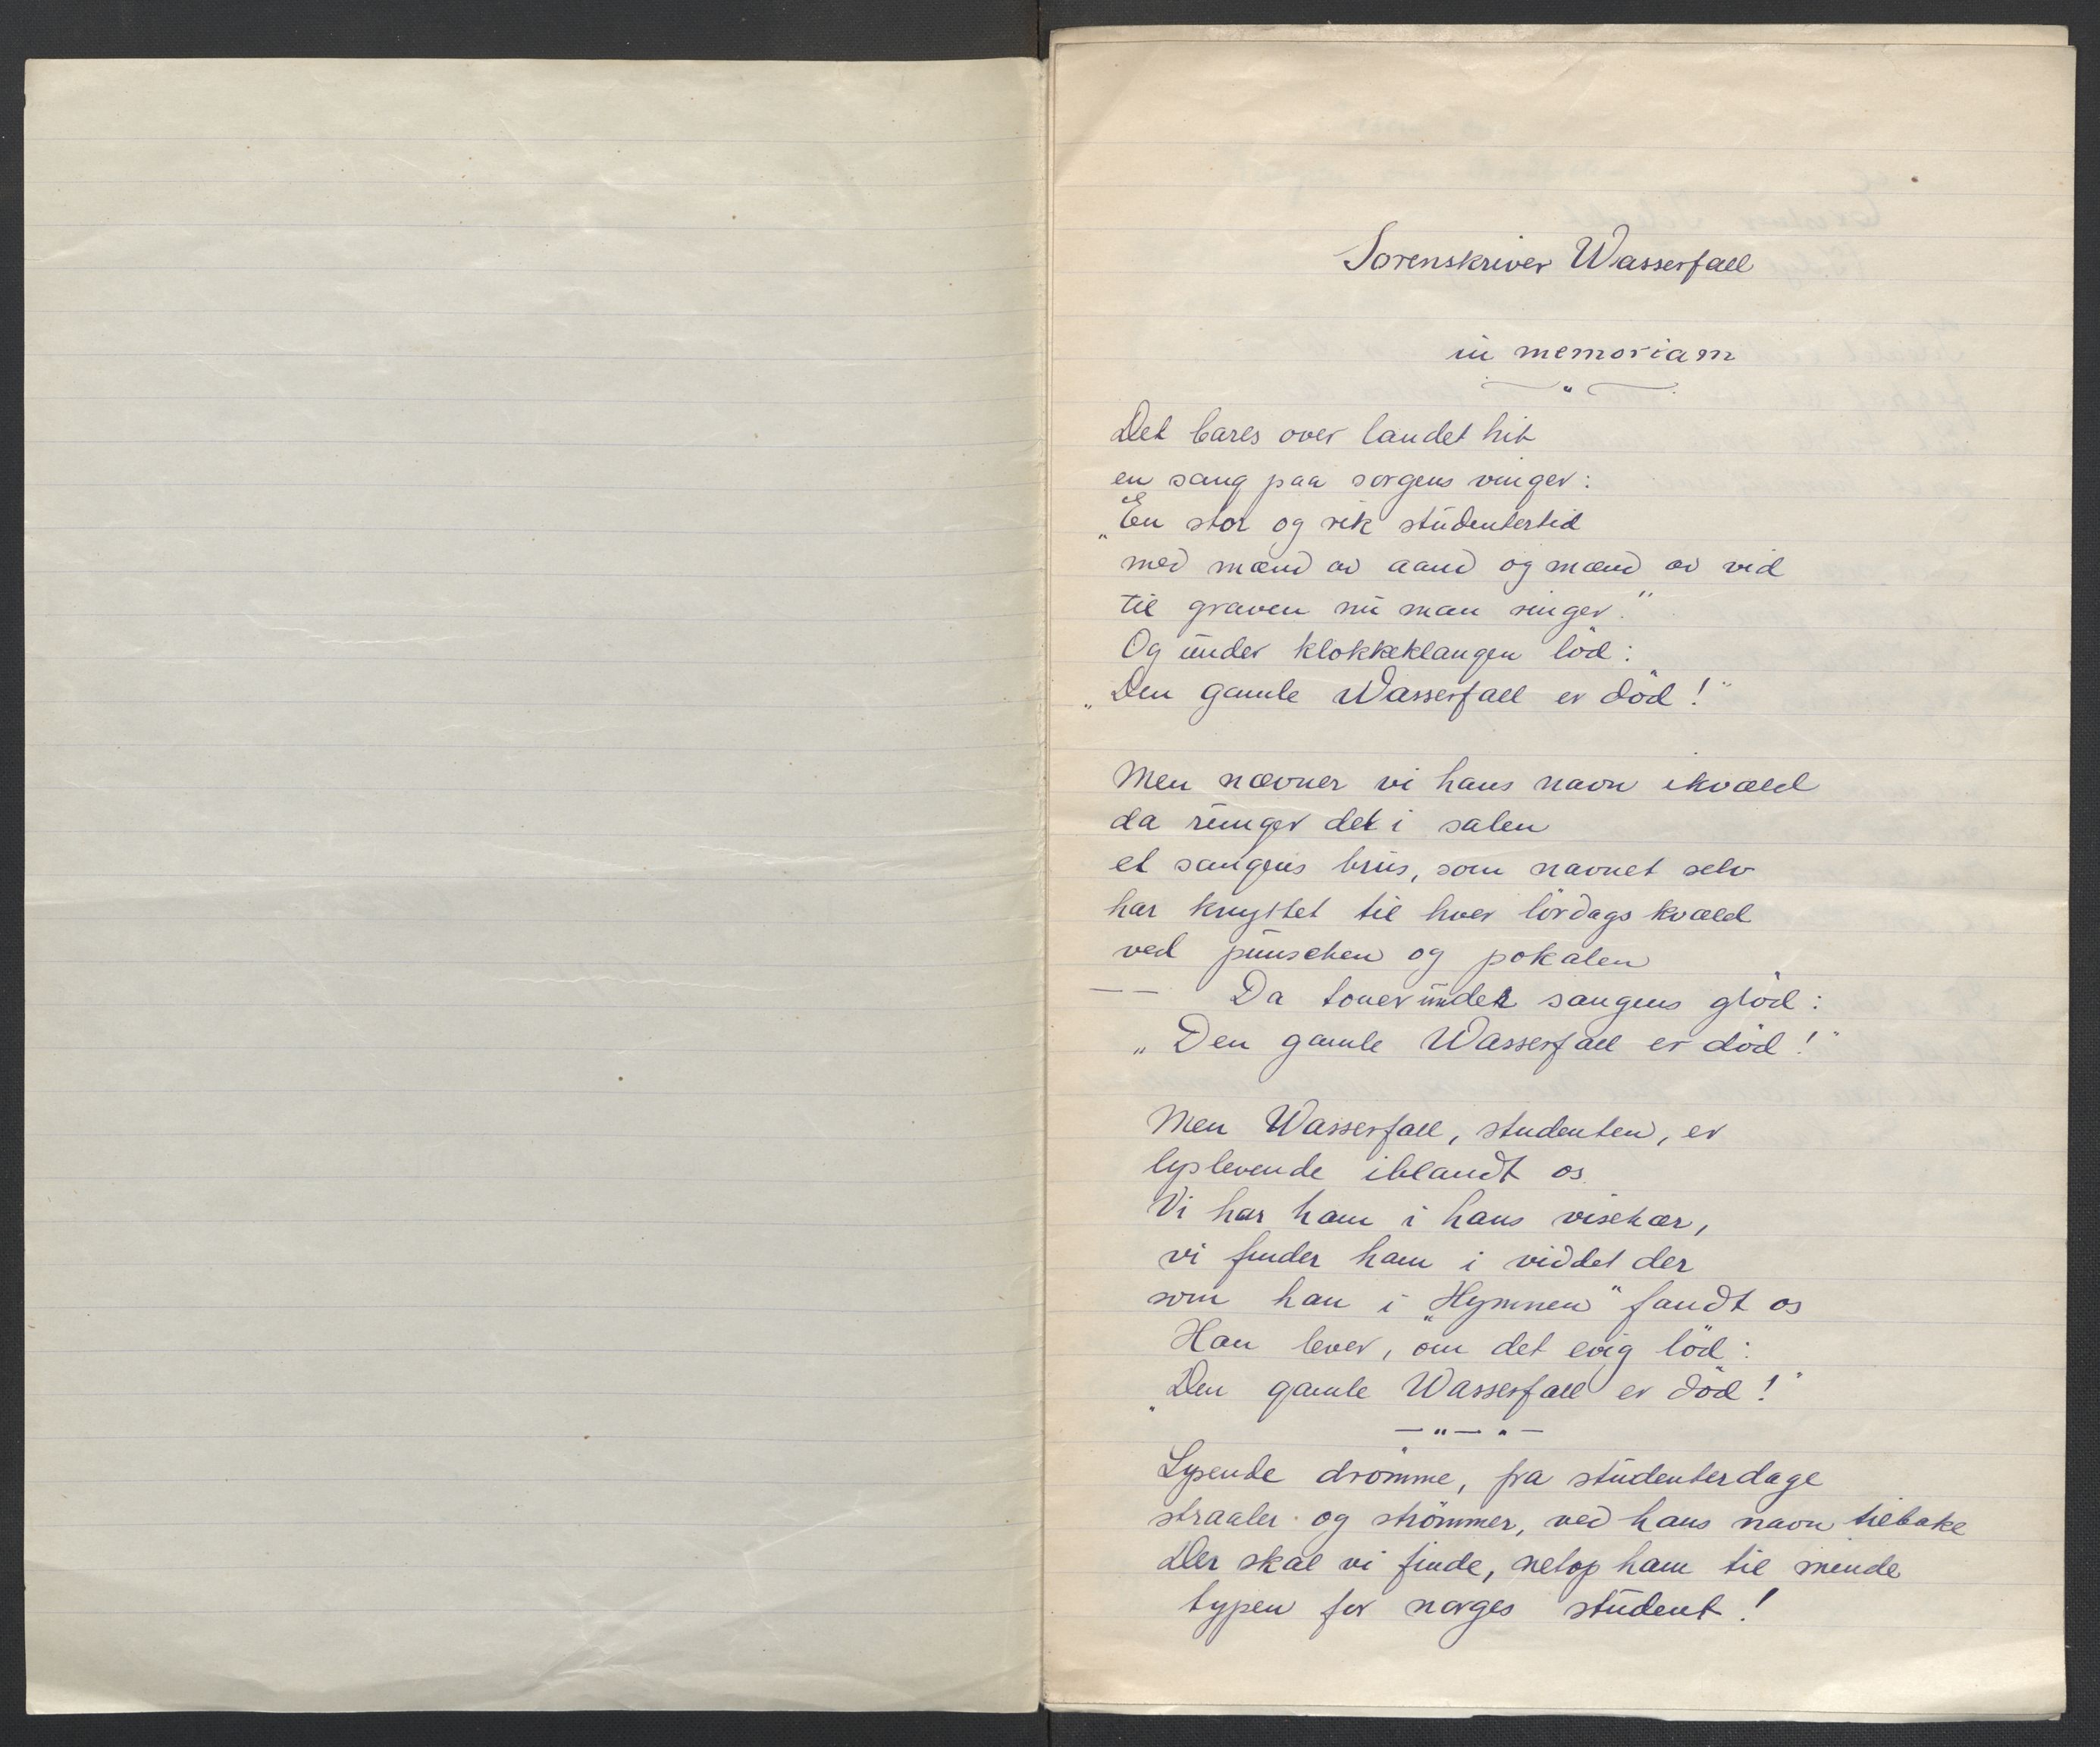 Sorenskriver Wasserfall
in memoriam
Det bares over landet hit
en sang paa sorgens vinger:
„En stor og rik studentertid
med mænd av aand og mænd av vid
til graven nu man ringer."
Og under klokkeklangen löd:
„Den gamle Wasserfall er död!"
Men nævner vi hans navn ikvæld
da runger det i salen
et sangens brus, som navnet selv
har knyttet til hver lördagskvæld
ved punschen og pokalen
— — Da toner under sangens glöd:
„Den gamle Wasserfall er död!"
Men Wasserfall, studenten, er
lyslevende iblandt os.
Vi har ham i hans visehær,
vi finder ham i viddet der
som han i „Hymnen" fandt os
Han lever, om det evig löd:
„Den gamle Wasserfall er död!"
—"—"—
Lysende drömme, fra studenterdage
straaler og strömmer, ved hans navn tilbake
Der skal vi finde, netop ham til minde
typen for norges student!